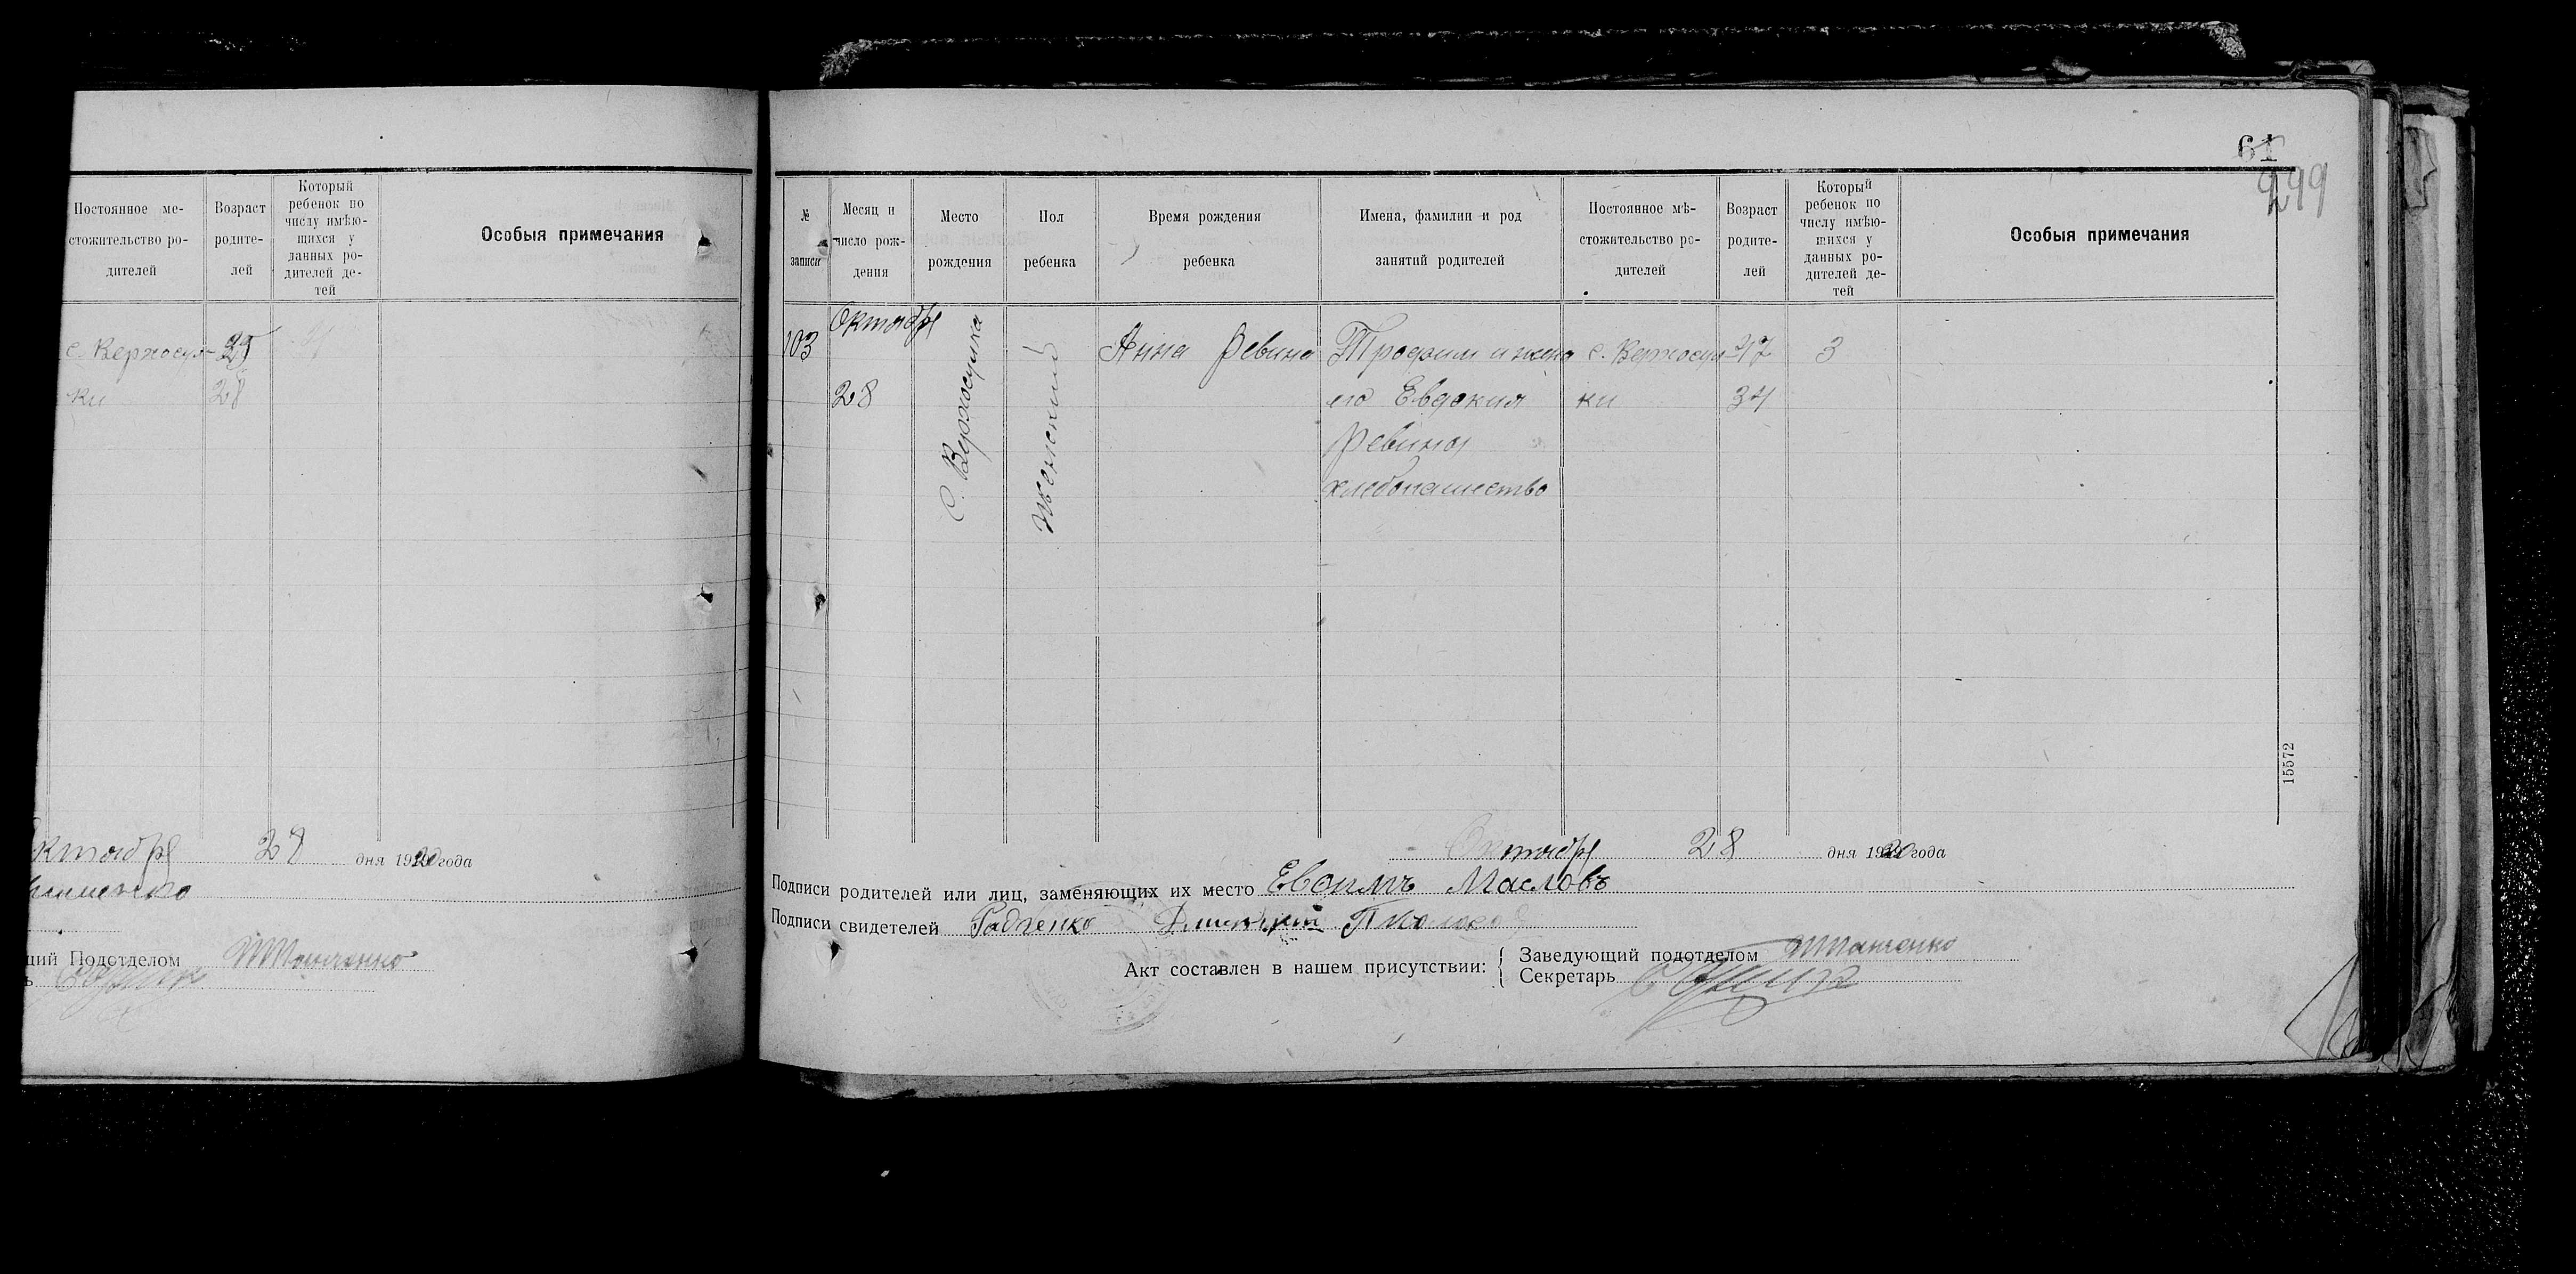 Постоянное ме-
стожительство ро-
дителей
Возраст
родите-
лей
Который
ребенок по
числу имѣю-
щихся у
данных ро-
дителей де-
тей
Особыя примечания
с. Верхосул-
ки
25
28
Октября 28 дня 1920 года
щий Подотделом
61
299
№
записи
Месяц и
число рож-
дения
Место
рождения
Пол
ребенка
Время рождения
ребенка
Имена, фамилии и род
занятий родителей
Постоянное мѣ-
стожительство ро-
дителей
Возраст
родите-
лей
Который
ребенок по
числу имѣю-
щихся у
данных ро-
дителей де-
тей
Особыя примечания
103
Октября
28
с. Верхосулка
Женский
Анна Ревина
Трофим и жена
его Евдокия
Ревина
хлебопашество
с. Верхосул
ки
37
34
3
15572
Октября 28 дня 1920 года
Подписи родителей или лиц, заменяющих их место Евфимъ Масловъ
Подписи свидетелей Радченко Дмитрий
Акт составлен в нашем присутствии:
Заведующий подотделом
Секретарь